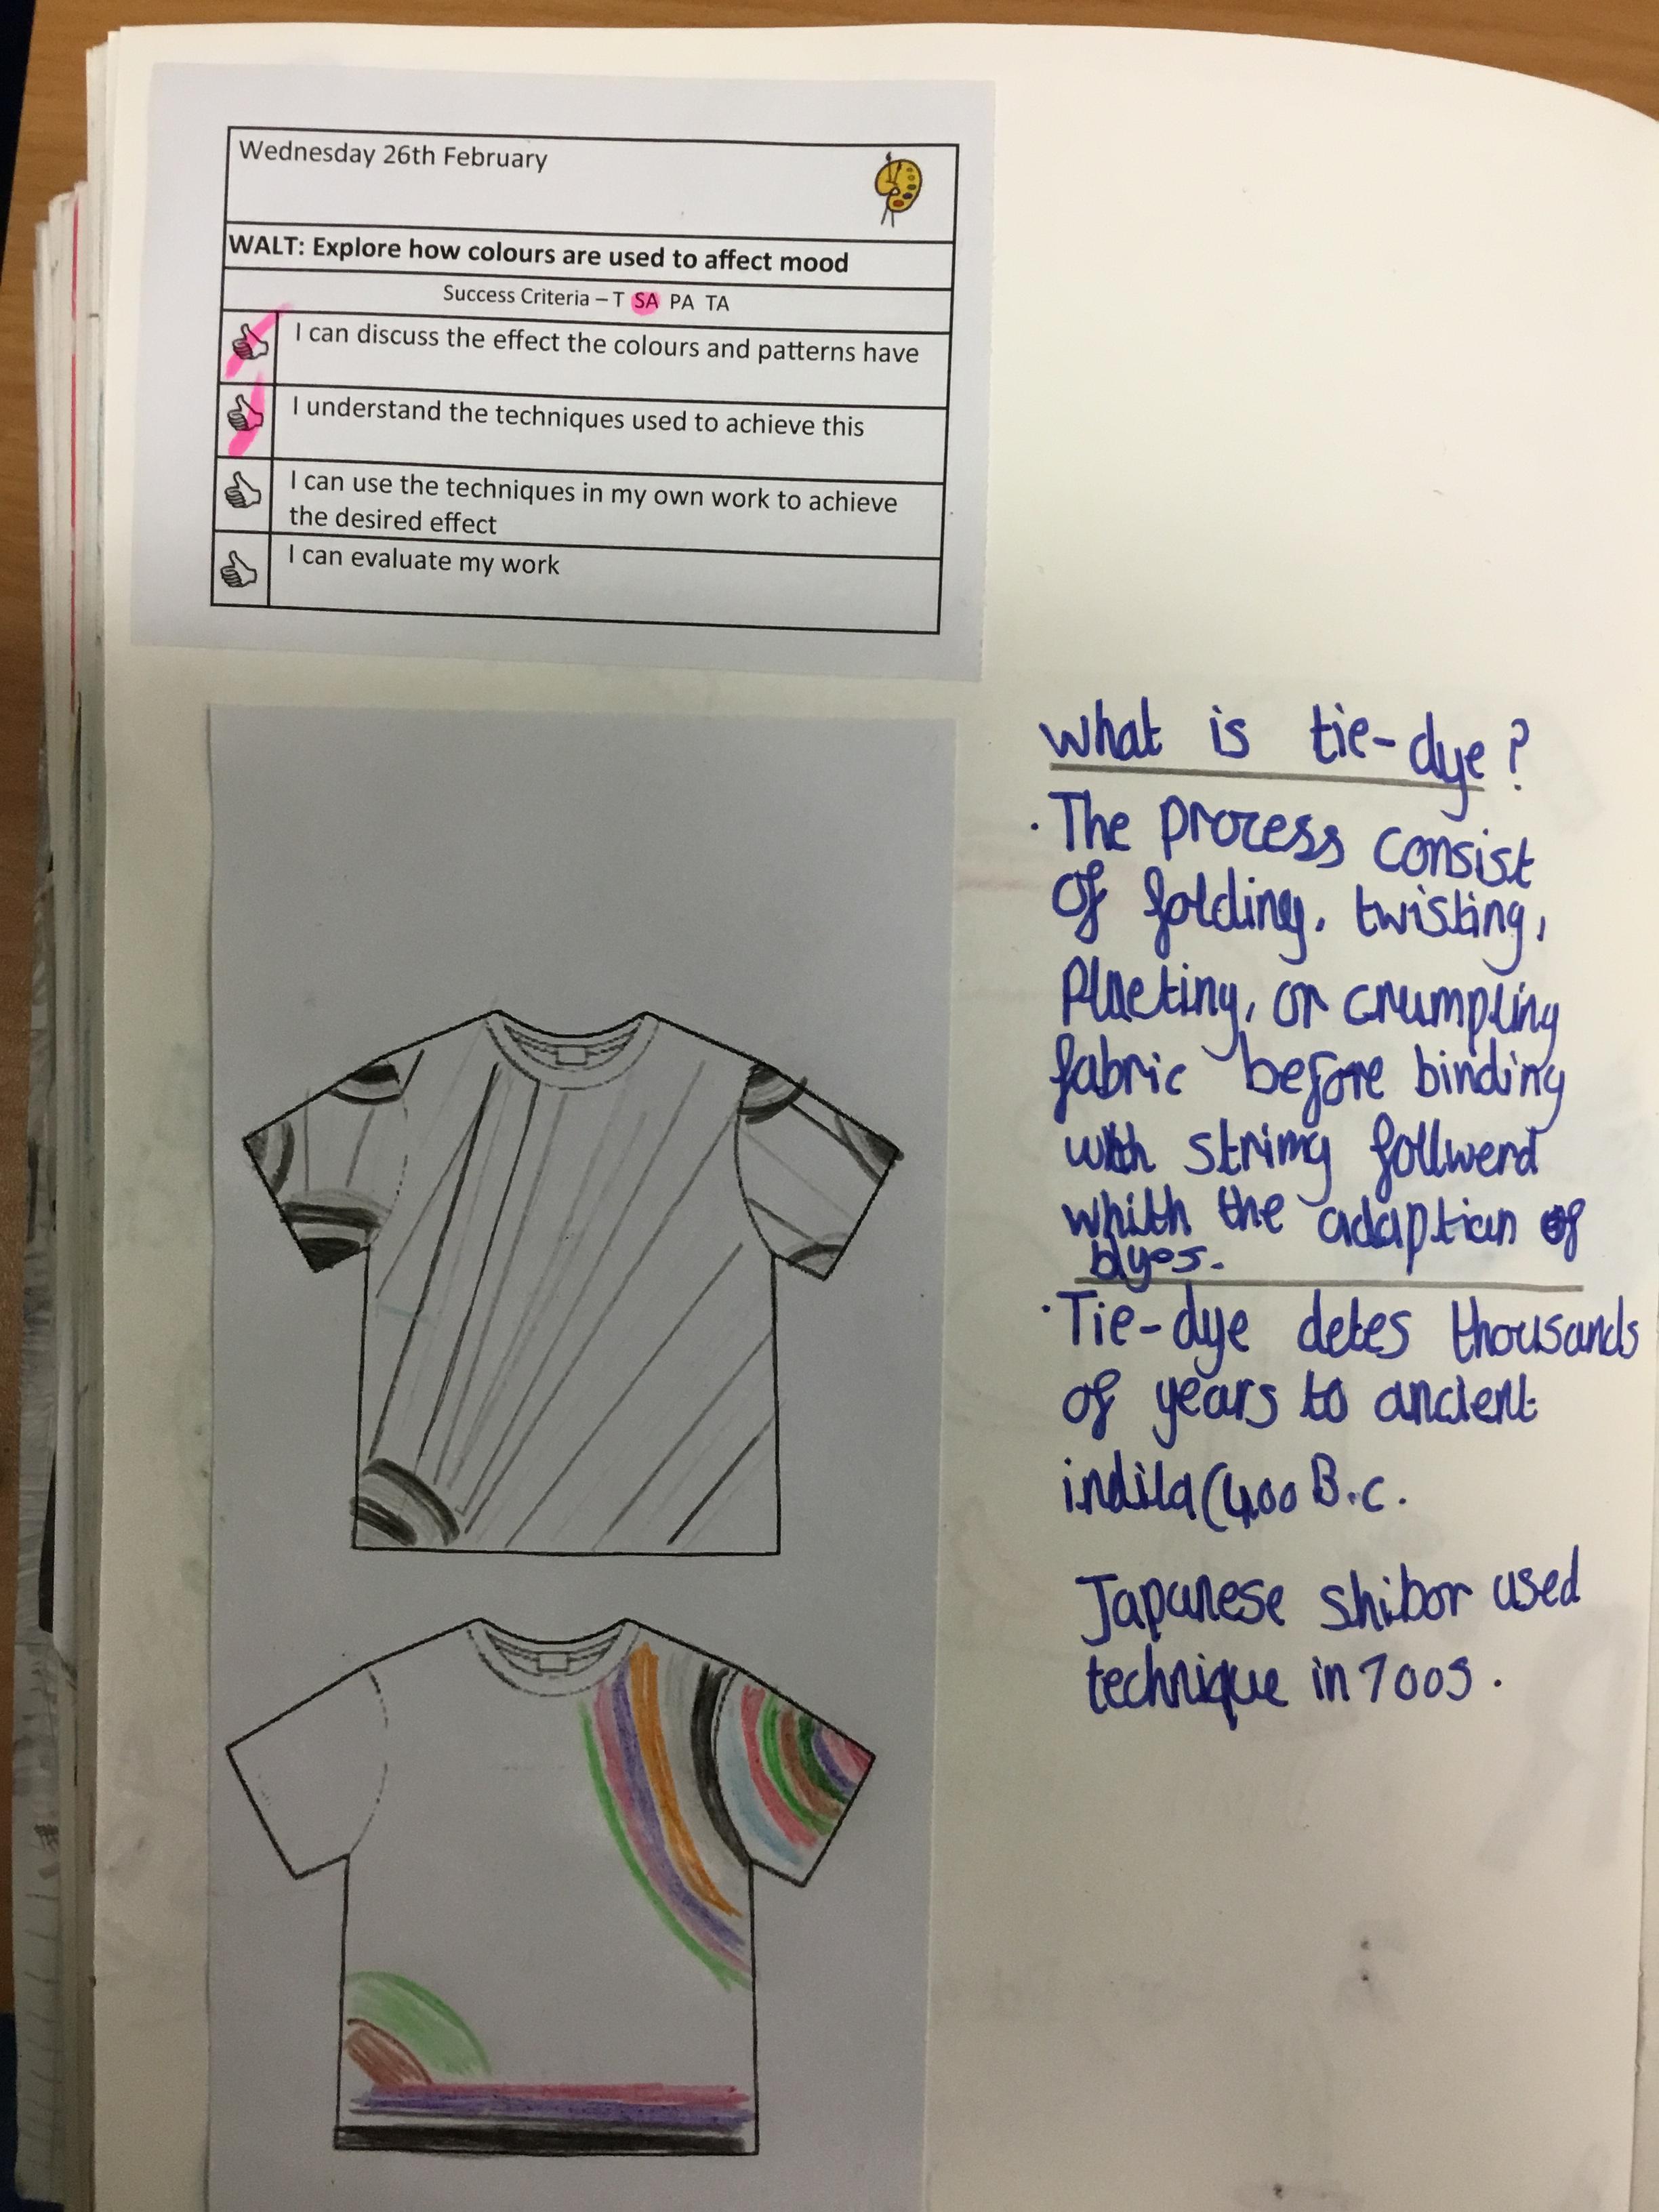 Wednesday 26th February
WALT: Explore how colours are used to affect mood
Success Criteria – T SA PA TA
I can discuss the effect the colours and patterns have
I understand the techniques used to achieve this
I can use the techniques in my own work to achieve
the desired effect
I can evaluate my work
what is tie-dye?
· The process consist
of folding, twisting,
Plaeting, or crumpling
fabric before binding
with string follwerd
whith the adaption of
dyes.
· Tie-dye detes thousands
of years to ancient
indila (400 B.c.
Japanese shibor used
technique in 700s.